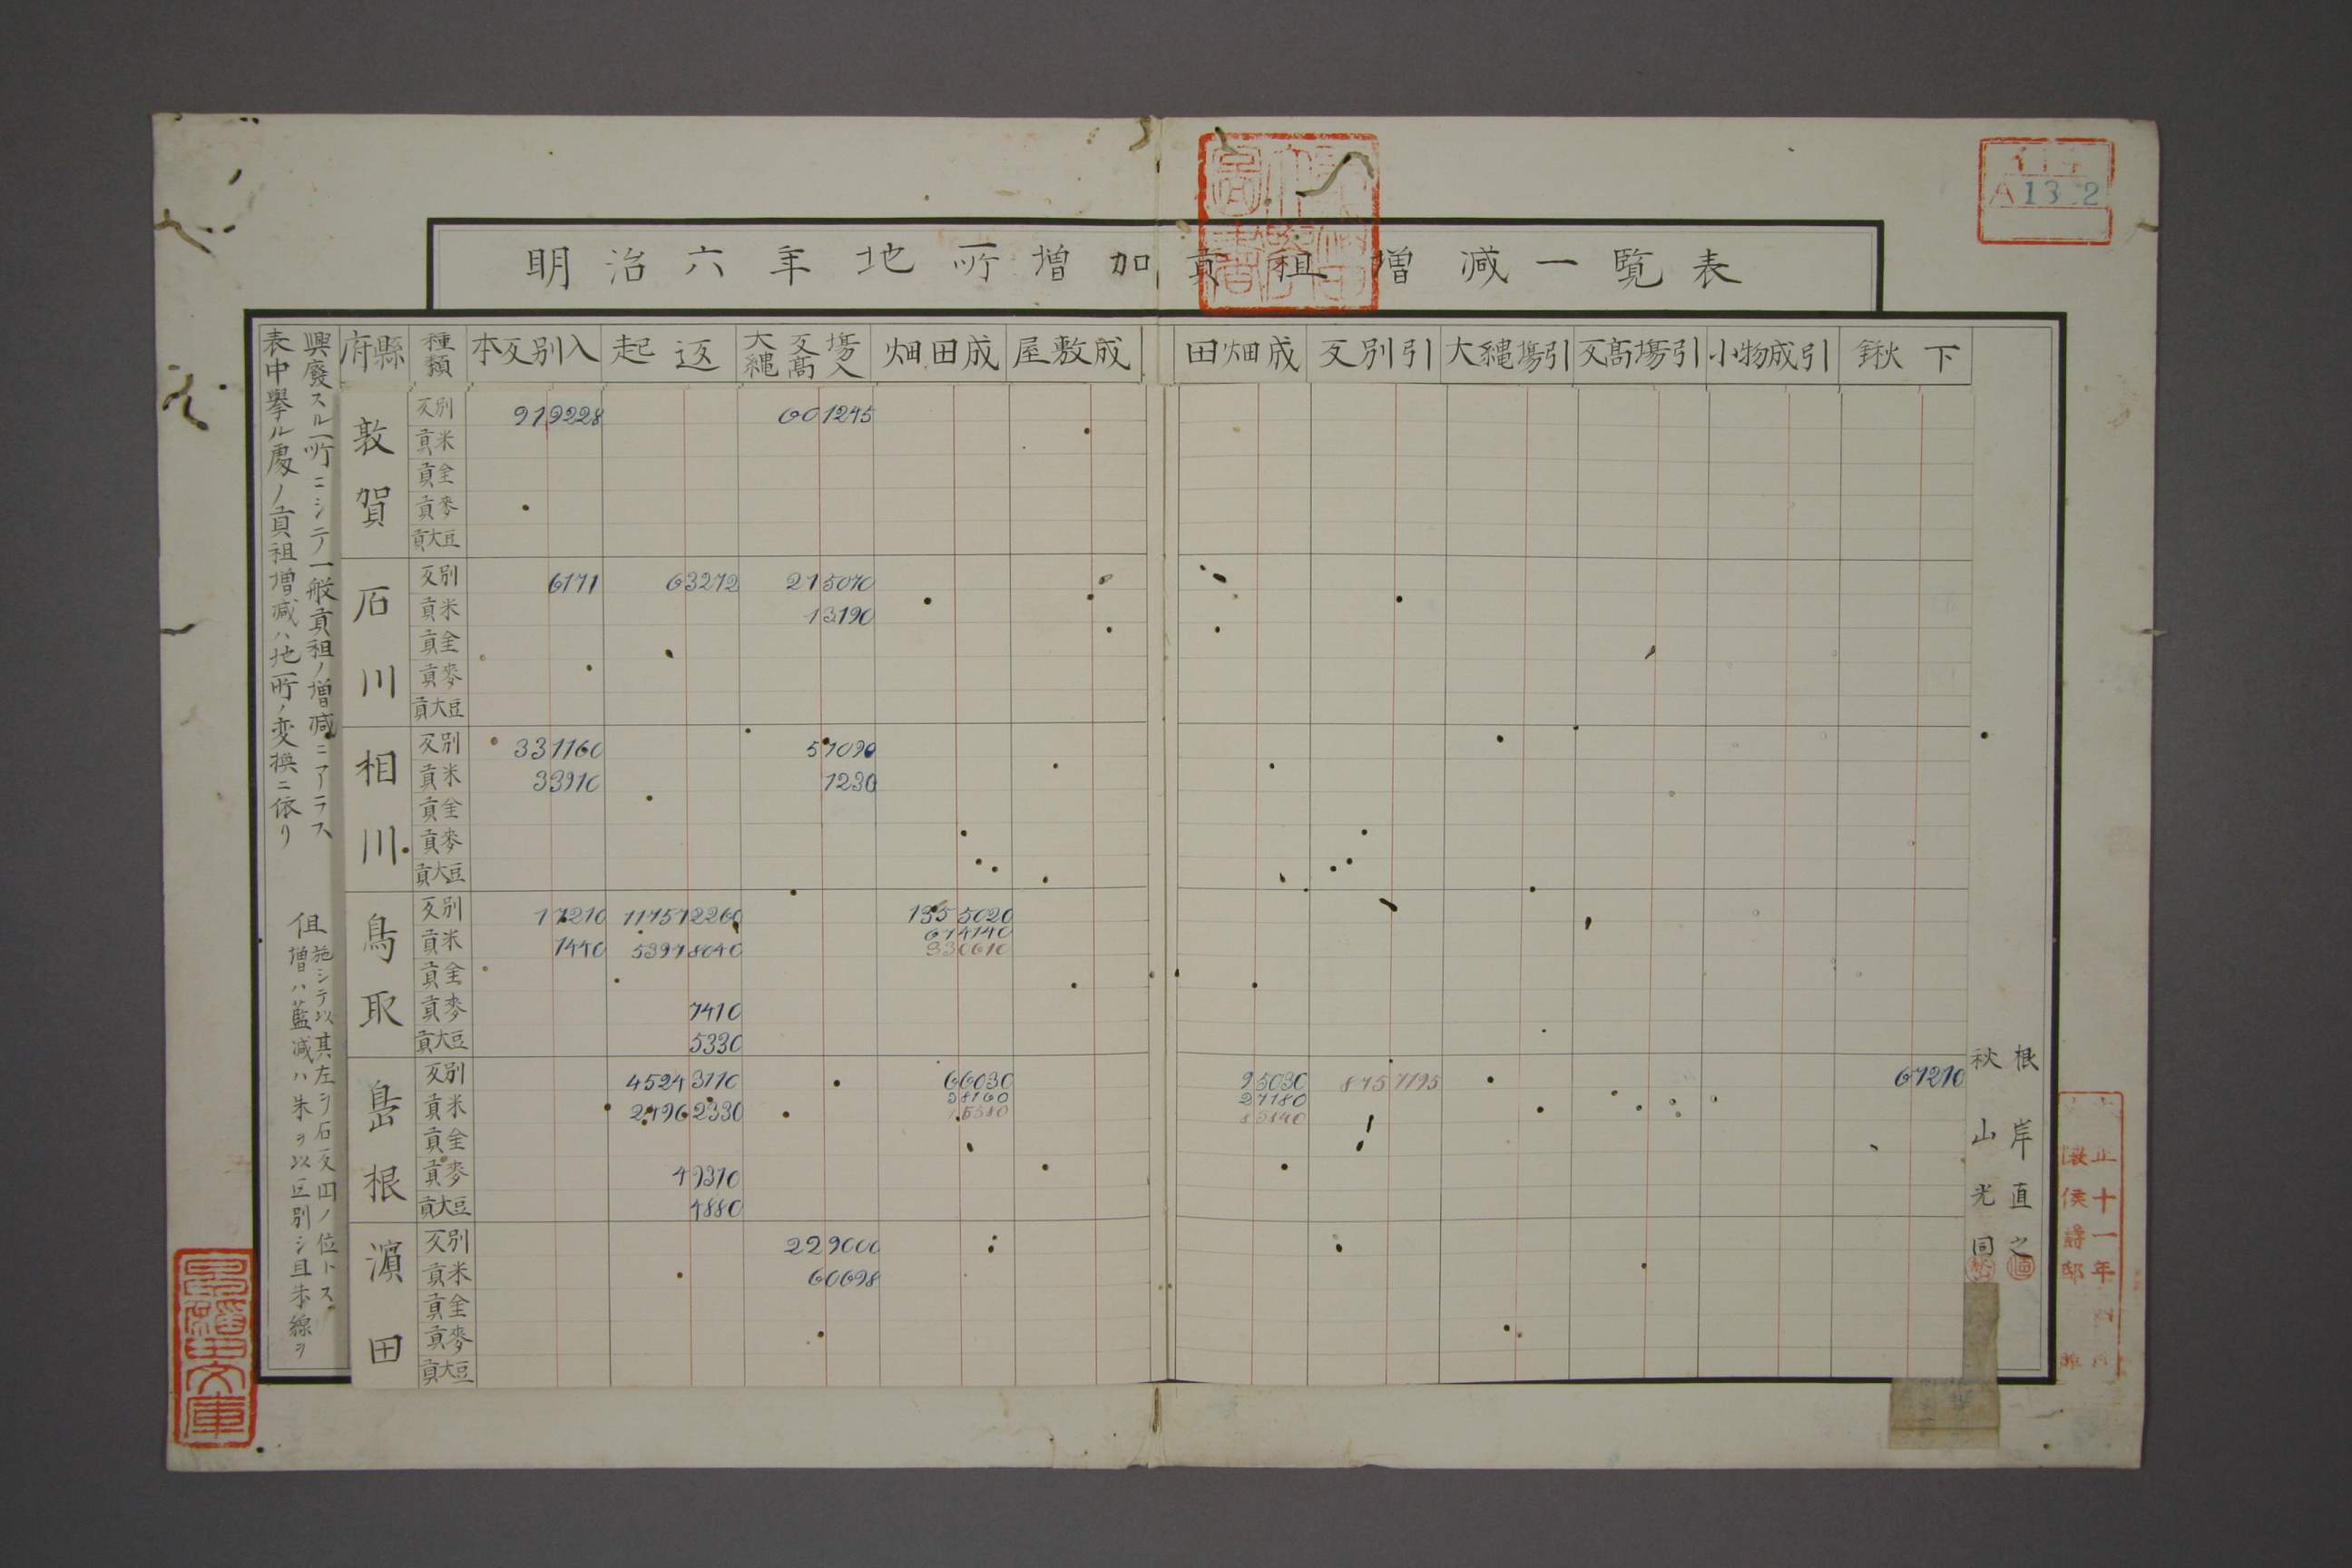 明治六年地所増加貢租增減一覧表
A13 2
府縣 種類 本反別入 起返 大縄反髙塲入 畑田成 屋敷成 田畑成 反別引 大縄塲引 反髙塲引 小物成引 鍬下
敦賀
反別 919228 601245
貢米
貢金
貢麥
貢大豆
石川
反別 6171 63272 215070
貢米 13190
貢金
貢麥
貢大豆
相川
反別 331160 51090
貢米 33910 1230
貢金
貢麥
貢大豆
鳥取
反別 11210 111512260 1355020
貢米 1440 53918040 614140
330610
貢金
貢麥 1410
貢大豆 5330
島根
反別 45243110 66030 95030 8151195 61210
貢米 24962330 38160 21180
15380 83140
貢金
貢麥 49310
貢大豆 4880
濵田
反別 229000
貢米 60698
貢金
貢麥
貢大豆
表中擧ル處ノ貢祖增減ハ地所ノ変換ニ依リ
興廢スル所ニシテ一般貢祖ノ增減ニアラス
但
增ハ藍減ハ朱ヲ以区別シ且朱線ヲ
施シテ以其左ヲ石反円ノ位トス
根岸直之
秋山光同
文庫
十一年
侯
邸